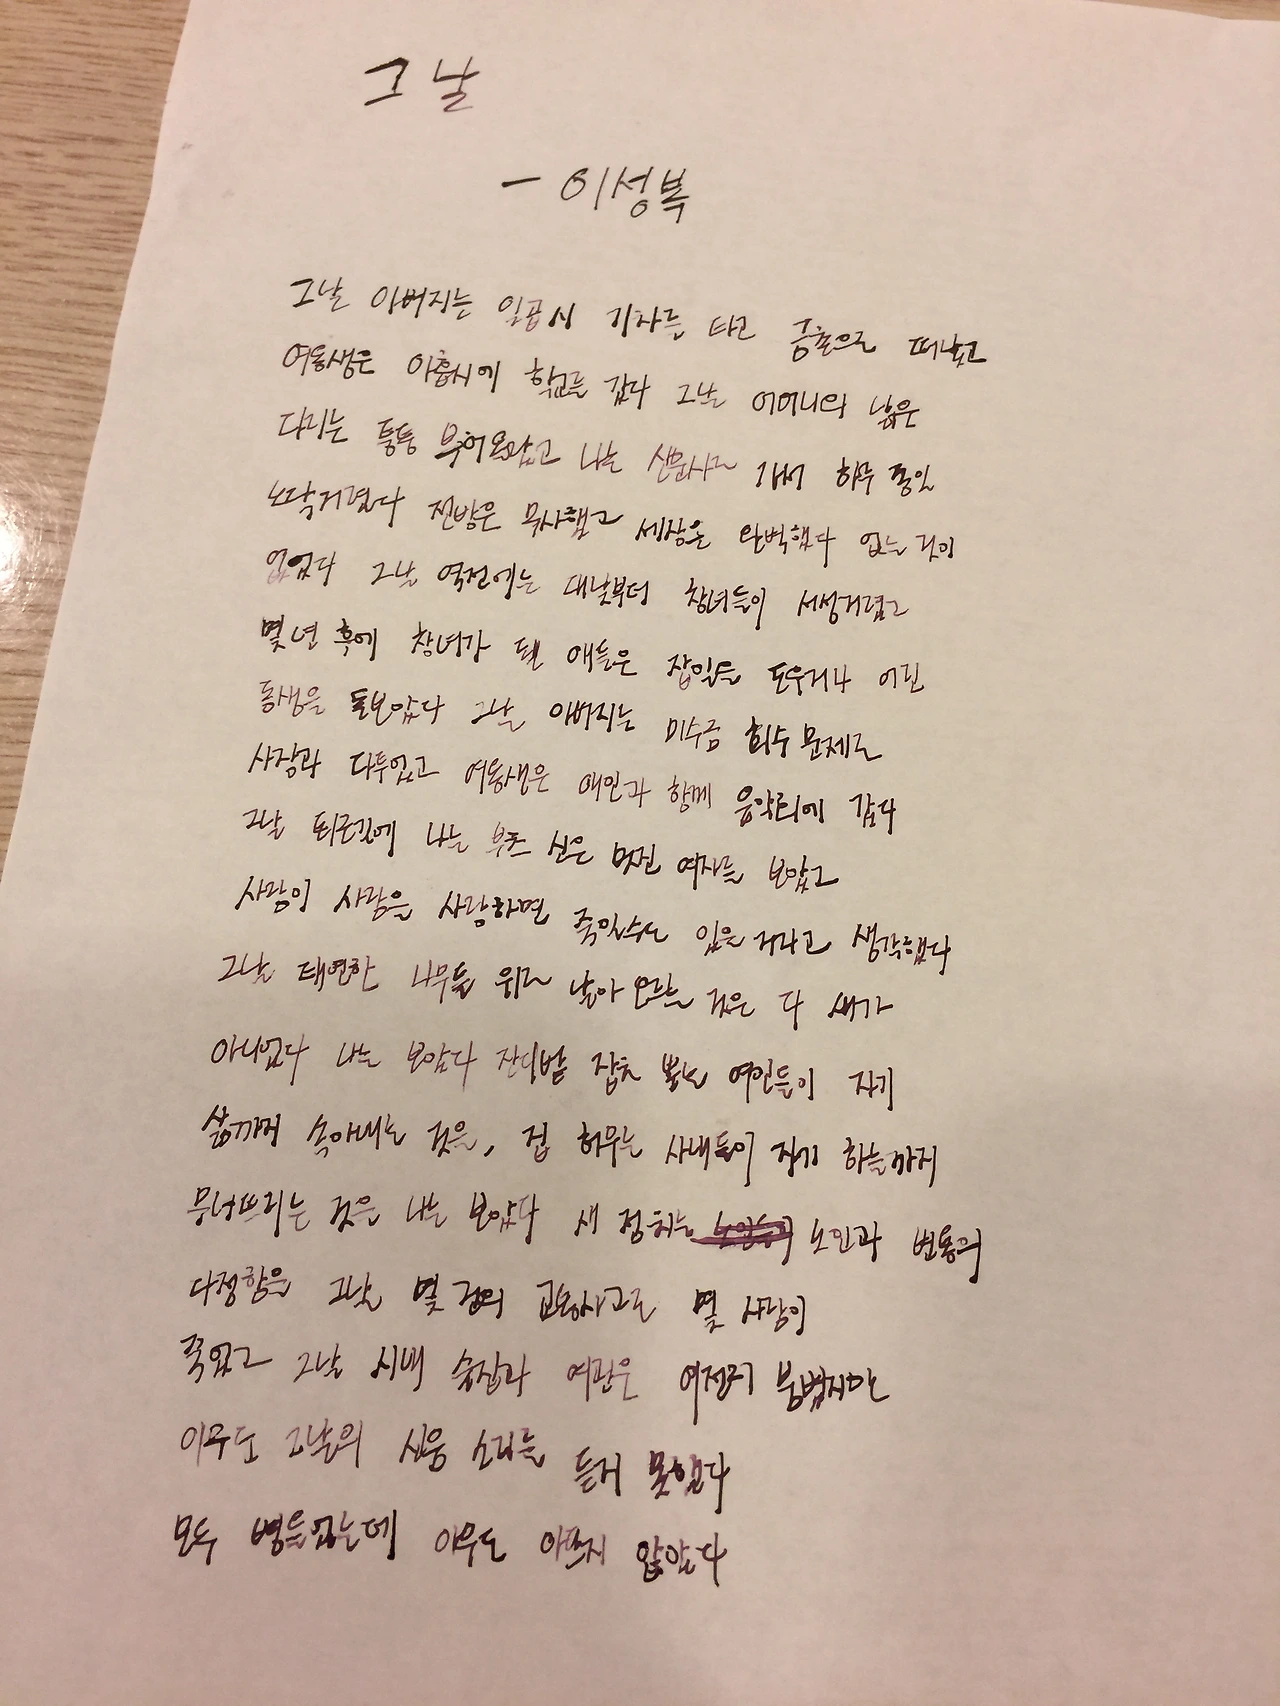 그날
- 이성복
그날 아버지는 일곱시 기차를 타고 금촌으로 떠났고
여동생은 아홉시에 학교를 갔다 그날 어머니의 낡은
다리는 퉁퉁 부어올랐고 나는 신문사로 가서 하루 종일
노닥거렸다 전방은 무사했고 세상은 완벽했다 없는 것이
없었다 그날 역전에는 대낮부터 창녀들이 서성거렸고
몇 년 후에 창녀가 될 애들은 잡일을 도우거나 어린
동생을 돌보았다 그날 아버지는 미수금 회수 문제로
사장과 다투었고 여동생은 애인과 함께 음악회에 갔다
그날 퇴근길에 나는 부츠 신은 멋진 여자를 보았고
사람이 사람을 사랑하면 죽일수도 있을 거라고 생각했다
그날 태연한 나무들 위로 날아 오르는 것은 다 새가
아니었다 나는 보았다 잔디밭 잡초 뽑는 여인들이 자기
삶까지 솎아내는 것을, 집 허무는 사내들이 자기 하늘까지
무너뜨리는 것을 나는 보았다 새 점치는 노인과 변통의
다정함을 그날 몇 건의 교통사고로 몇 사람이
죽었고 그날 시내 술집과 여관은 여전히 붐볐지만
아무도 그날의 신음 소리를 듣지 못했다
모두 병들었는데 아무도 아프지 않았다